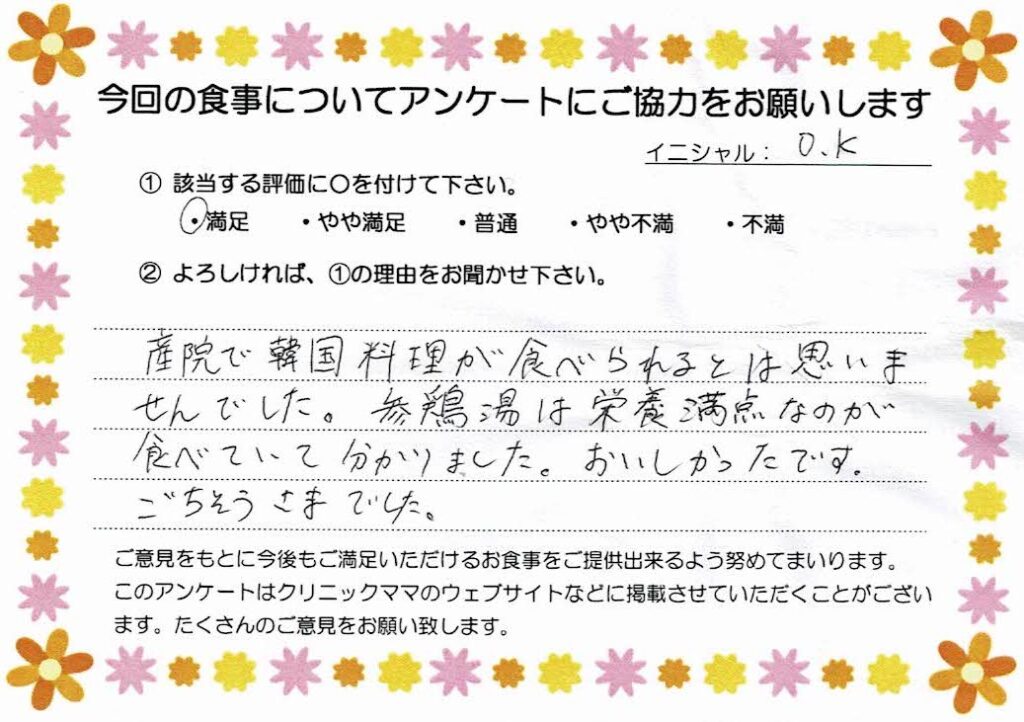 今回の食事についてアンケートにご協力をお願いします
イニシャル： O.K
① 該当する評価に〇を付けて下さい。
・満足 ・やや満足 ・普通 ・やや不満 ・不満
② よろしければ、①の理由をお聞かせ下さい。
産院で韓国料理が食べられるとは思いま
せんでした。参鶏湯は栄養満点なのが
食べていて分かりました。おいしかったです。
ごちそうさまでした。
ご意見をもとに今後もご満足いただけるお食事をご提供出来るよう努めてまいります。
このアンケートはクリニックママのウェブサイトなどに掲載させていただくことがござい
ます。たくさんのご意見をお願い致します。